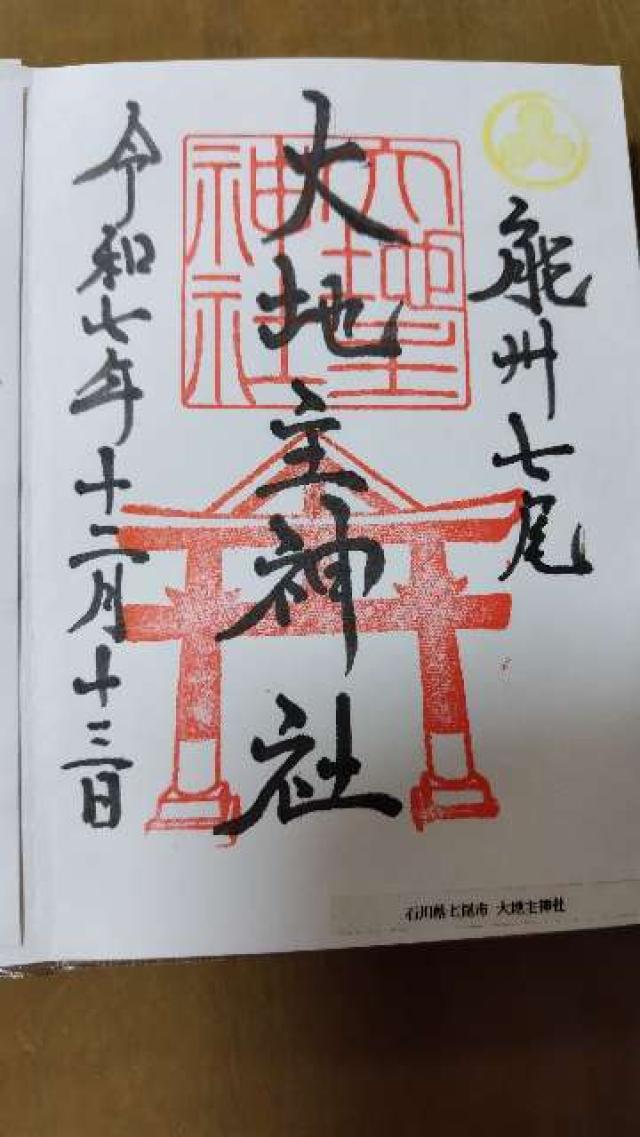 能州七尾
大地主神社
大地主
神社
令和七年十二月十三日
石川県七尾市 大地主神社